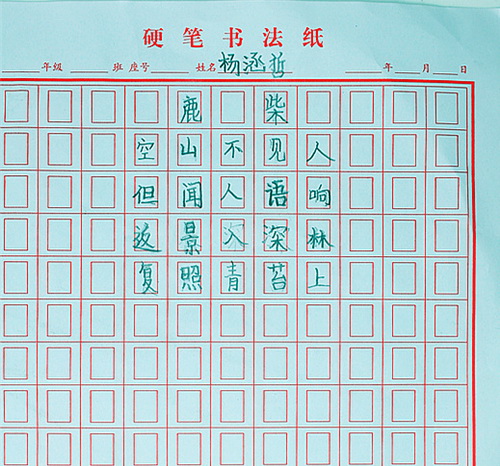 硬笔书法纸
年级 班 座号 姓名 杨涵哲 年 月 日
鹿柴
空山不见人
但闻人语响
返景入深林
复照青苔上